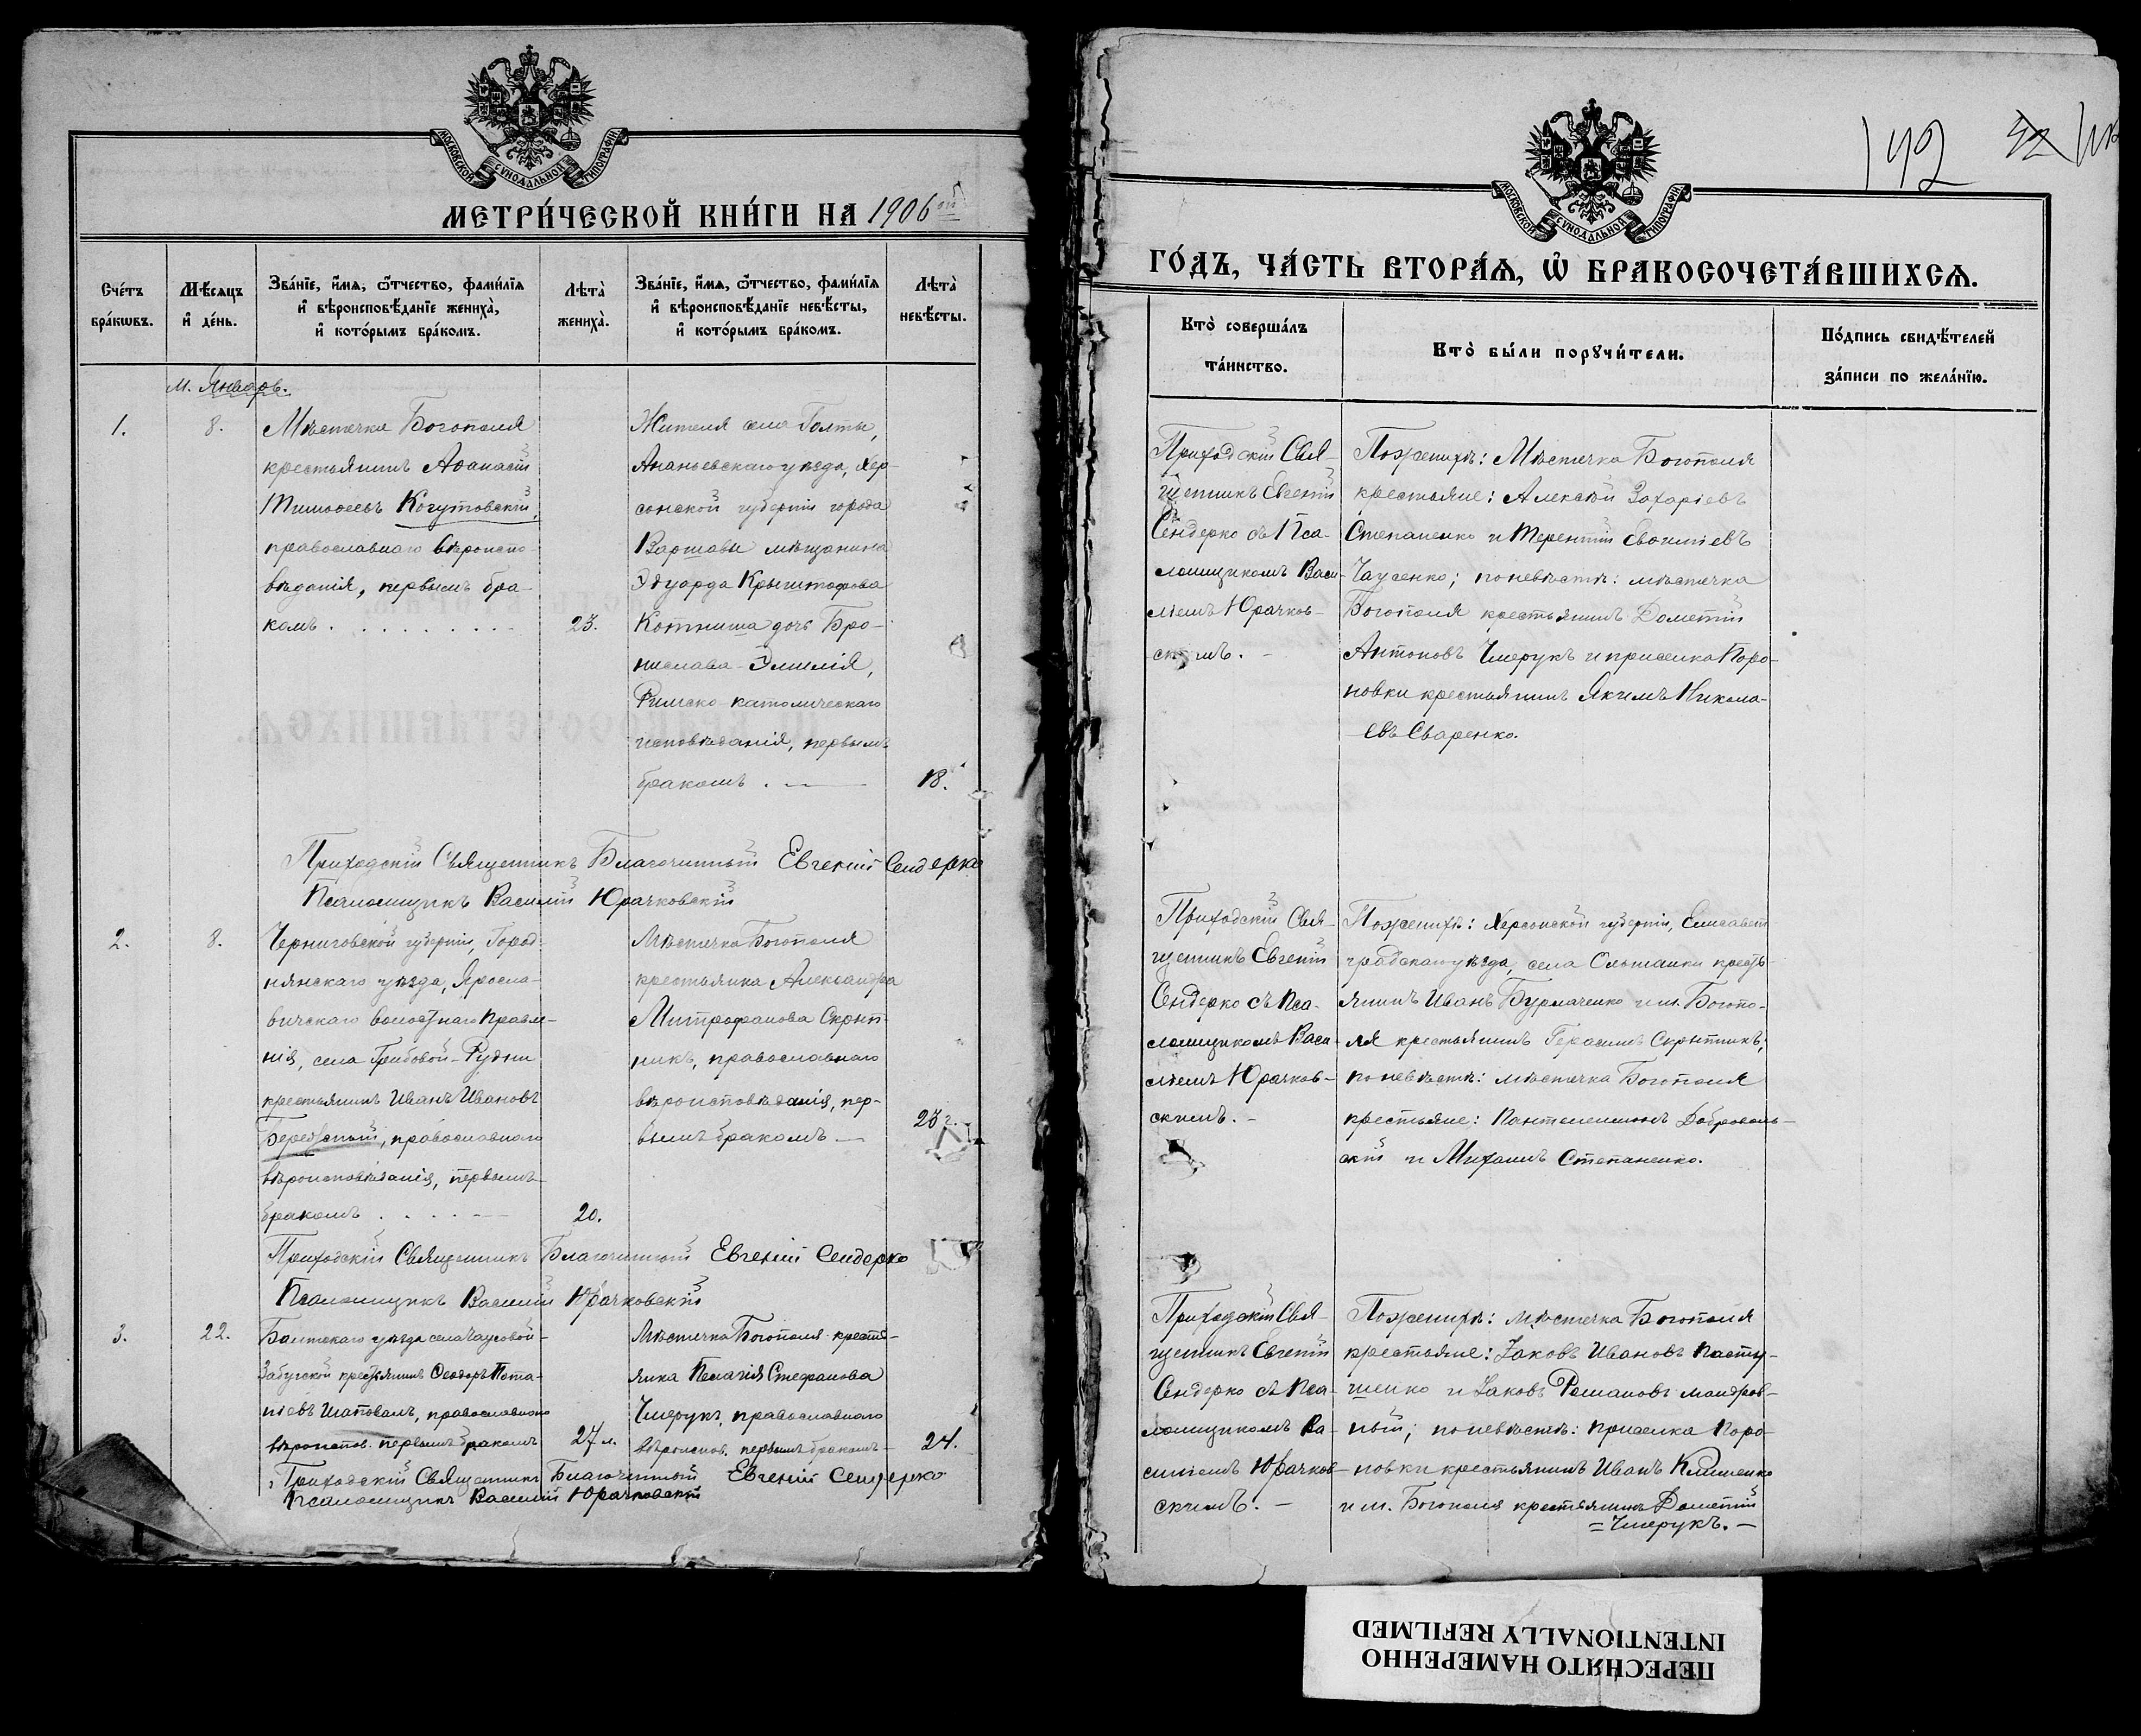 МОСКОВСКОЙ СѴНОДАЛЬНОЙ ТИПОГРАФІИ
МЕТРИ́ЧЕСКОЙ КНИ́ГИ НА 1906ой
Счéтъ
брáкѡвъ.
Мѣ́сяцъ
и҆ дéнь.
Звáнїе, и҆́мѧ, ѻ҆́тчество, фами́лїѧ
и҆ вѣроисповѣ́данїе женихà,
и҆ кото́рымъ брáкомъ.
Лѣтà
женихà.
Звáнїе, и҆́мѧ, ѻ҆́тчество, фами́лїѧ
и҆ вѣроисповѣ́данїе невѣ́сты,
и҆ кото́рымъ брáкомъ.
Лѣтà
невѣ́сты.
м. Январь.
1.
8.
Мѣстечка Богополя
крестьянинъ Аѳанасій
Тимоѳеевъ Когутовскій,
православнаго вѣроиспо-
вѣданія, первымъ бра-
комъ . . . . . . . .
23.
Жителя села Голты,
Ананьевскаго уѣзда, Хер-
сонской губерніи города
Варшавы мѣщанина
Эдуарда Крыштофова
Котниша дочь Бро-
нислава-Эмилія,
Римско-католическаго
исповѣданія, первымъ
бракомъ . —
18.
Приходскій Священникъ Благочинный Евгеній Сендерко
Псаломщикъ Василій Юрачковскій
2.
8.
Черниговской губерніи, Город-
нянскаго уѣзда, Яросла-
вичскаго волостнаго Правле-
нія, села Грибовой-Рудни
крестьянинъ Иванъ Ивановъ
православнаго
вѣроисповѣданія, первымъ
бракомъ . . . . —
20.
Мѣстечка Богополя
крестьянка Александра
Митрофанова Скрып-
никъ, православнаго
вѣроисповѣданія, пер-
вымъ бракомъ —
23 г.
Приходскій Священникъ Благочинный Евгеній Сендерко
Псаломщикъ Василій Юрачковскій
3.
22.
Балтскаго уѣзда села Чаусовой-
Забугской крестьянинъ Ѳеодоръ Пота-
піевъ Шаповалъ, православнаго
вѣроиспов. первымъ бракомъ
27 л.
Мѣстечка Богополя крестья-
янка Пелагія Стефанова
Чмерукъ, православнаго
вѣроиспов. первымъ бракомъ —
24.
Приходскій Священникъ Благочинный Евгеній Сендерко
Псаломщикъ Василій Юрачковскій
142
42
МОСКОВСКОЙ СѴНОДАЛЬНОЙ ТИПОГРАФІИ
ГО́ДЪ, ЧА́СТЬ ВТОРА́Ѧ, Ѡ҆ БРАКОСОЧЕТА́ВШИХСѦ.
Ктò совершáлъ
тáинство.
Ктò бы́ли порꙋчи́тели.
По́дпись свидѣ́телей
зáписи по желáнїю.
Приходскій Свя-
щенникъ Евгеній
Сендерко съ Пса-
ломщикомъ Васи-
ліемъ Юрачков-
скимъ. —
По женихѣ: Мѣстечка Богополя
крестьяне: Алексѣй Захаріевъ
Степаненко и Терентій Евѳиміевъ
Чаусенко; по невѣстѣ: мѣстечка
Богополя крестьянинъ Дометій
Антоновъ Чмерукъ и приселка Поро-
новки крестьянинъ Якимъ Никола-
евъ Сваренко.
Приходскій Свя-
щенникъ Евгеній
Сендерко съ Пса-
ломщикомъ Васи-
ліемъ Юрачков-
скимъ. —
По женихѣ: Херсонской губерніи, Елисавет
градскаго уѣзда, села Ольшанки кресть-
янинъ Иванъ Бурмаченко и м. Богопо-
ля крестьянинъ Герасимъ Скрыпникъ;
по невѣстѣ: мѣстечка Богополя
крестьяне: Пантелеимонъ Доброволь-
скій и Михаилъ Степаненко.
Приходскій Свя-
щенникъ Евгеній
Сендерко съ Пса-
ломщикомъ Ва-
силіемъ Юрачков-
скимъ. —
По женихѣ: мѣстечка Богополя
крестьяне: Іаковъ Ивановъ Пасту-
шенко и Іаковъ Романовъ мандров-
ный; по невѣстѣ: приселка Поро-
новки крестьянинъ Иванъ Клименко
и м. Богополя крестьянинъ Дометій
= Чмерукъ. —
ПЕРЕСНЯТО НАМЕРЕННО
INTENTIONALLY REFILMED